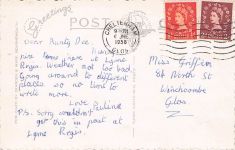 Greetings
POST
CHELTENHAM
1958
GLOS
Dear Aunty Dee,
nice time here at Lyme
Regis. Weather not too bad
Going around to different
places so no time to
write more.
Love Pauline
P.S. Sorry couldn't
get this in post at
Lyme Regis.
Miss Griffin
84 North St
Winchcombe
Glos